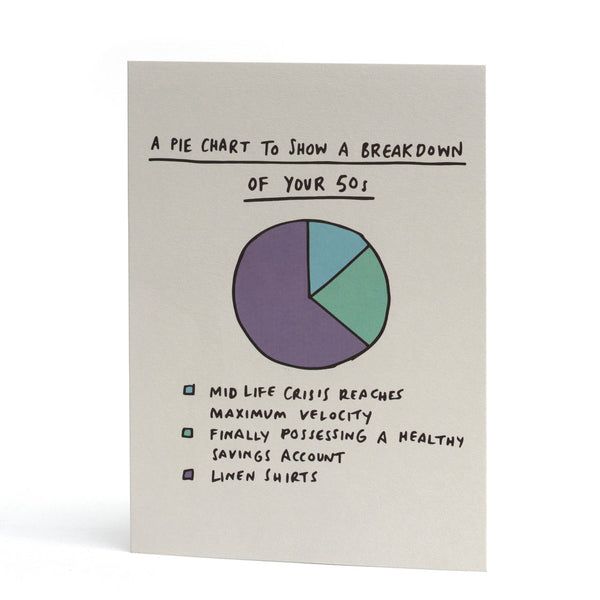 A PIE CHART TO SHOW A BREAKDOWN
OF YOUR 50s
MID LIFE CRISIS REACHES
MAXIMUM VELOCITY
FINALLY POSSESSING A HEALTHY
SAVINGS ACCOUNT
LINEN SHIRTS